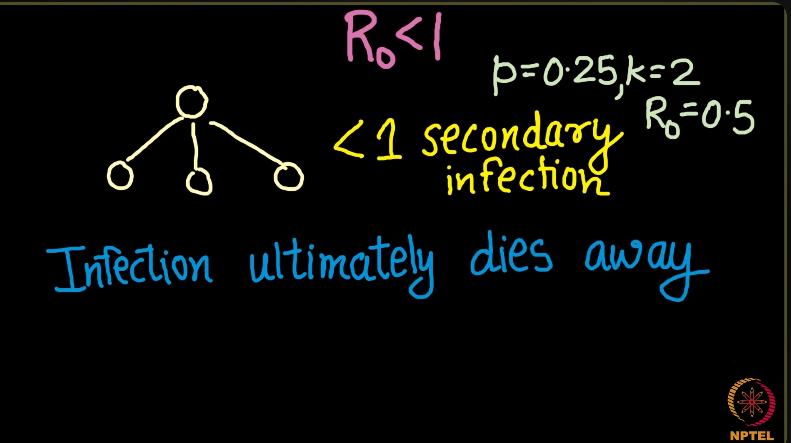 R₀<1
p=0.25,k=2
R₀=0.5
<1 secondary
infection
Infection ultimately dies away
NPTEL